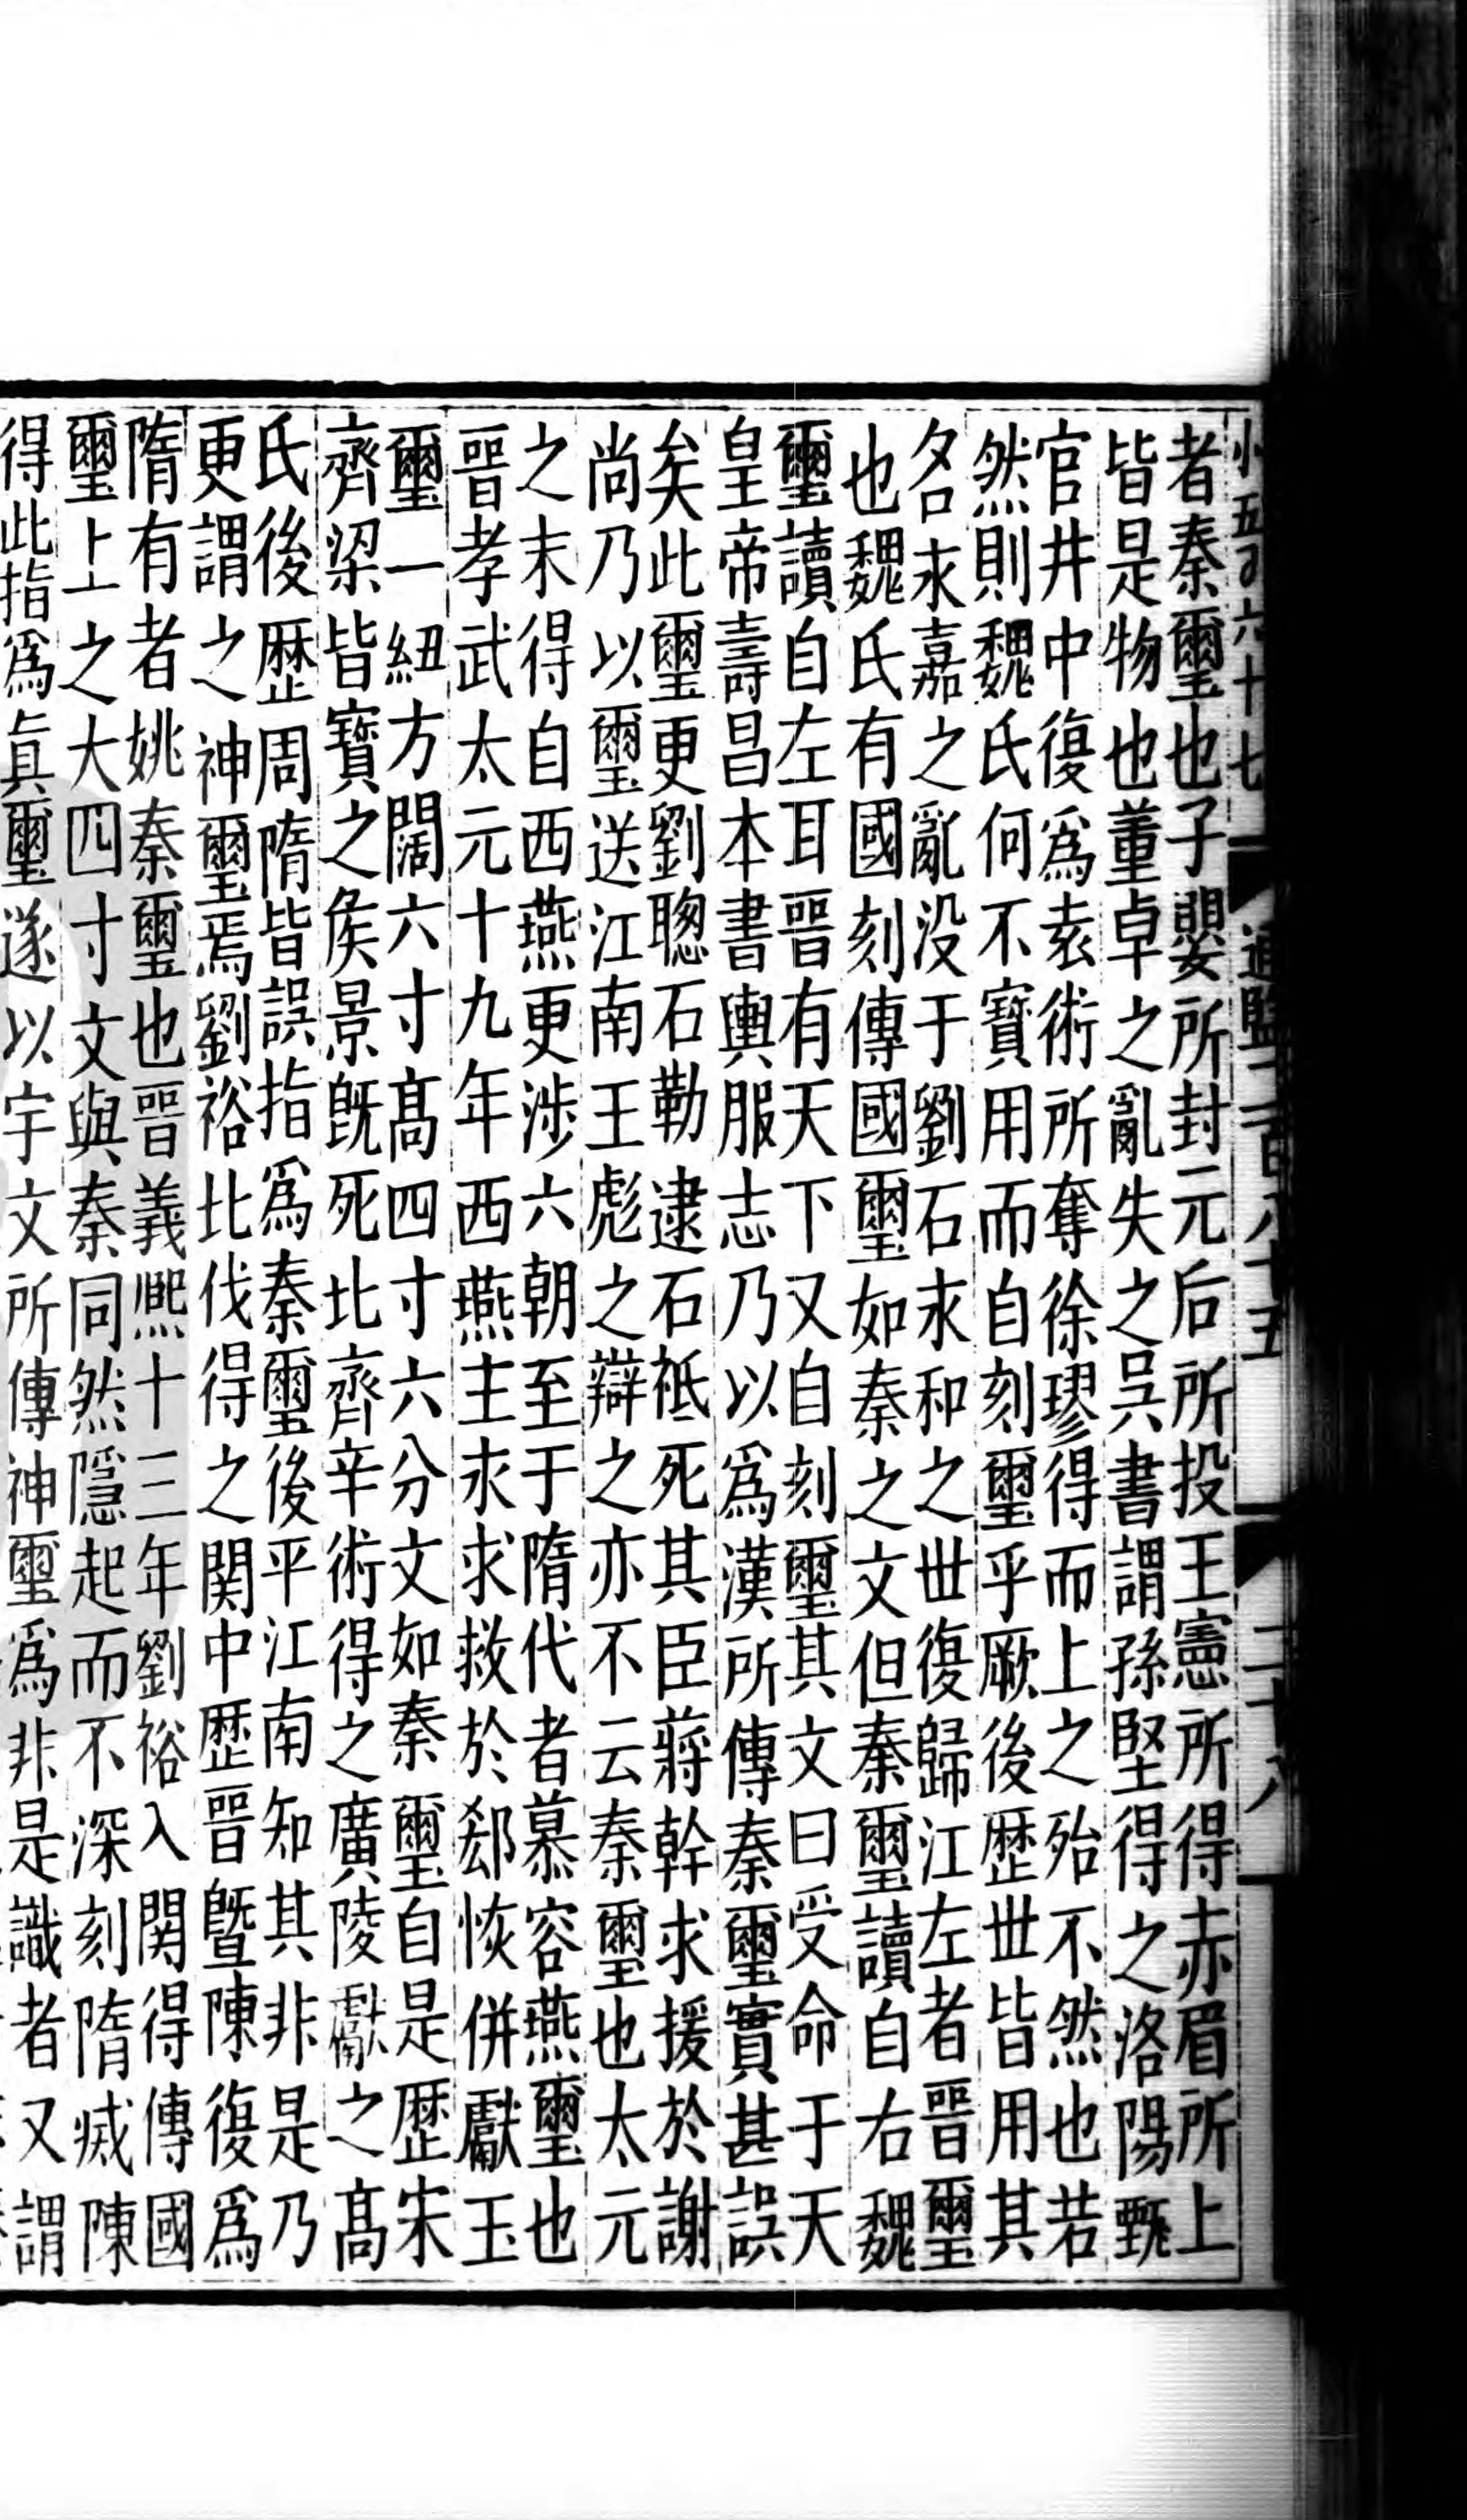 小五百六十七 通鑑一百八十五 二十八
者秦璽也子嬰所封元后所投王憲所得赤眉所上
皆是物也董卓之亂失之吳書謂孫堅得之洛陽甄
官井中復爲袁術所奪徐璆得而上之殆不然也若
然則魏氏何不寳用而自刻璽乎厥後歴世皆用其
名永嘉之亂没于劉石永和之世復歸江左者晉璽
也魏氏有國刻傳國璽如秦之文但秦璽讀自右魏
璽讀自左耳晉有天下又自刻璽其文曰受命于天
皇帝壽昌本書輿服志乃以爲漢所傳秦璽實甚誤
矣此璽更劉聰石勒逮石祗死其臣蔣幹求援於謝
尚乃以璽送江南王彪之辯之亦不云秦璽也太元
之末得自西燕更涉六朝至于隋代者慕容燕璽也
晉孝武太元十九年西燕主永求救於郄恢併獻玉
璽一紐方闊六寸髙四寸六分文如秦璽自是歴宋
齊梁皆寳之侯景旣死北齊辛術得之廣陵獻之髙
氏後歴周隋皆誤指爲秦璽後平江南知其非是乃
更謂之神璽焉劉裕北伐得之関中歴晉曁陳復爲
隋有者姚秦璽也晉義熙十三年劉裕入関得傳國
璽上之大四寸文與秦同然隱起而不深刻隋滅陳
得此指爲眞璽遂以宇文所傳神璽爲非是識者又謂